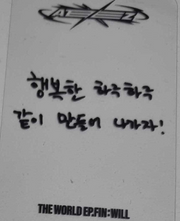 ATEEZ
행복한 하루하루
같이 만들어 나가자!
THE WORLD EP.FIN : WILL